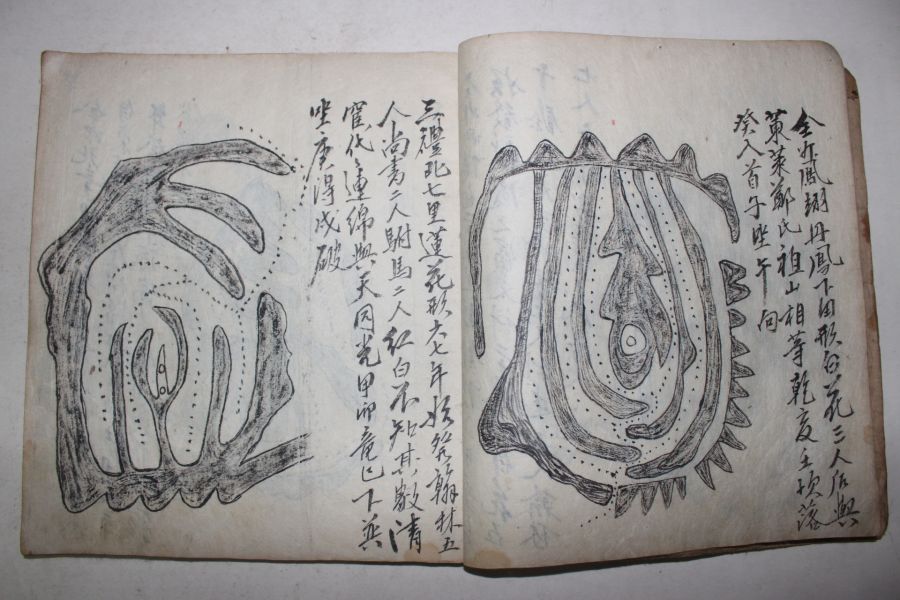 全州鳳翔丹鳳下田形白花三人后與
黃菜鄭氏祖山相等乾亥壬坎落
癸入首子坐午向
三禮北七里蓮花形六七年次發翰林五
人尚書二人駙馬二人紅白不知其數淸
寬代連綿與天同光甲卯龍巳下英
坐庚得戌破